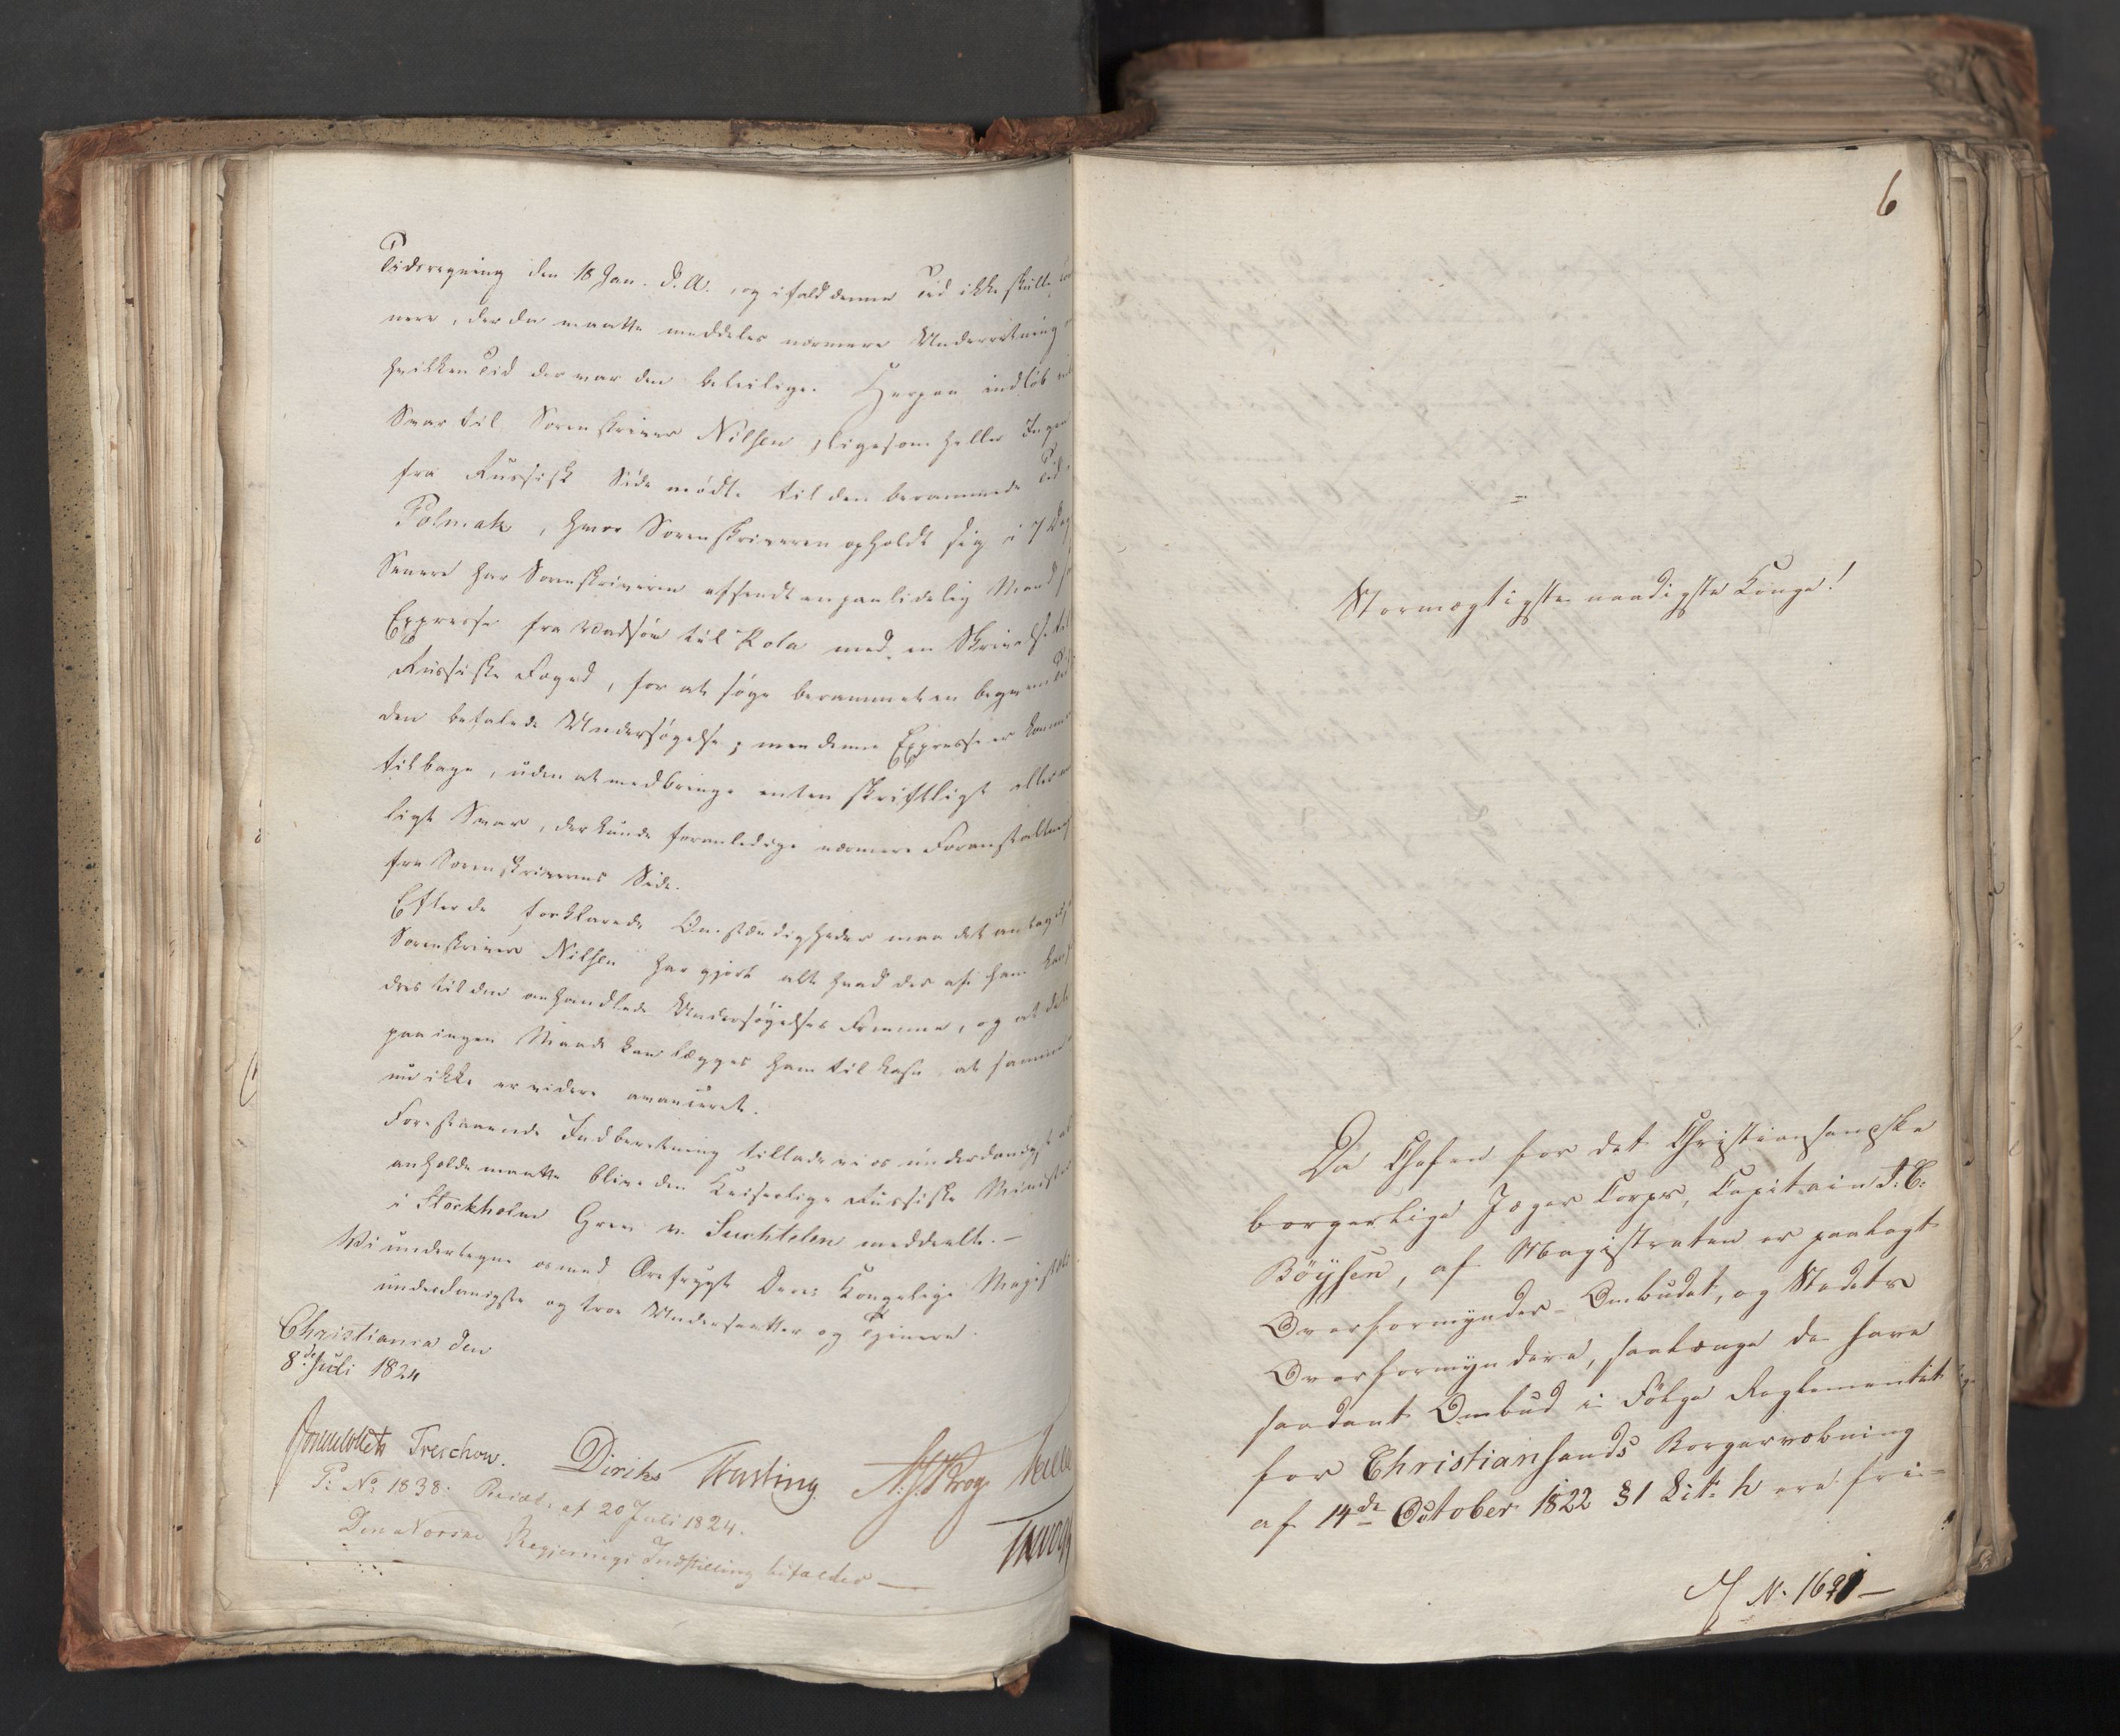 Tidsregning den 18 Jan. d. A., og ifald denne Tid ikke skulle
nere, der da maatte meddeles nærmere Underretning
hvilken Tid der var den beleilige. Herpaa indløb
Svar til Sorenskriver Nilsen, ligesom heller Ingen
fra Russisk Side mødte til den berammede Tid
Polmak, hvor Sorenskriveren opholdt sig i 7 Dage
Senere har Sorenskriveren afsendt en paalidelig Mand
Expresse fra Vadsøe til Kola med en Skrivelse til
Russiske Foged, for at søge berammet en beqvem Tid
den befalede Undersøgelse; men denne Expresse er kommen
tilbage, uden at medbringe enten skriftligt eller
ligt Svar, der kunde foranledige nærmere Foranstaltning
fra Sorenskriverens Side.
Efter de forklarede Omstændigheder maa det antages,
Sorenskriver Nilsen har gjort alt hvad der af ham
dres til den anhandlede Undersøgelses Fremme, og at det
paa ingen Maade kan lægges ham til Last at samme
nu ikke er videre avanceret.
Forestaaende Indberetning tillade vi os underdanigst at
anholde maatte blive den Keiserlige Russiske Minister
i Stockholm Grev v. Suchtelen meddeelt. —
Vi undertegne os med Ærefrygt Deres Kongelige Majestæts
underdanigste og troe Undersaatter og Tjenere.
Christiania den
8de Juli 1824
Sommerhielm Treschow. Diriks Fasting. Krog
P: No 1838. Resol. af 20 Juli 1824.
Den Norske Regjerings Indstilling bifaldes —
6
Stormægtigste naadigste Konge!
Da Chefen for det Christiansandske
borgerlige Jæger Corps, Capitain J. C.
Böysen, af Magistraten er paalagt
Overformynder-Ombudet, og Stadets
Overformyndere, saalænge de have
saadant Ombud i Følge Reglementet
for Christiansands Borgervæbning
af 14de October 1822 §1 Lit: h ere fri=
N. 1691 —